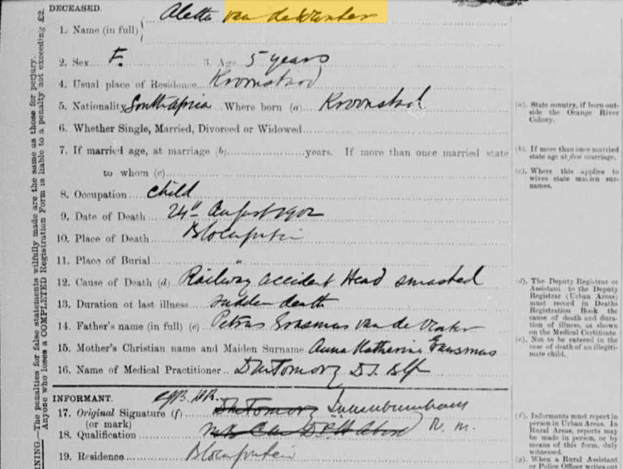 DECEASED.
1. Name (in full) Aletta van de Venter
2. Sex F. 3. Age 5 years
4. Usual place of Residence Kroonstad
5. Nationality South Africa Where born (a) Kroonstad
6. Whether Single, Married, Divorced or Widowed
7. If married age, at marriage (b) years. If more than once married state
to whom (c)
8. Occupation Child
9. Date of Death 24th August 1902
10. Place of Death Bloemfontein
11. Place of Burial "
12. Cause of Death (d) Railway accident Head smashed
13. Duration of last illness sudden death
14. Father's name (in full) (e) Petrus Erasmus van de Venter
15. Mother's Christian name and Maiden Surname Anna Katherina
16. Name of Medical Practitioner
INFORMANT.
17. Original Signature (f)
(or mark) R. M.
18. Qualification
19. Residence Bloemfontein
(a). State country, if born outside the Orange River Colony.
(b). If more than once married state age at first marriage.
(c). Where this applies to wives state maiden surnames.
(d). The Deputy Registrar or Assistant to the Deputy Registrar (Urban Areas) must record in Deaths Registration Book the cause of death and duration of illness, as shown on the Medical Certificate
(e). Not to be entered in the case of death of an illegitimate child.
(f). Informants must report in person in Urban Areas. In Rural Areas, reports may be made in person, or by means of this form, duly witnessed.
(g). When a Rural Assistant or Police Officer writes out
WARNING.—The penalties for false statements wilfully made are the same as those for perjury.
Anyone who loses a COMPLETED Registration Form is liable to a penalty not exceeding £2.